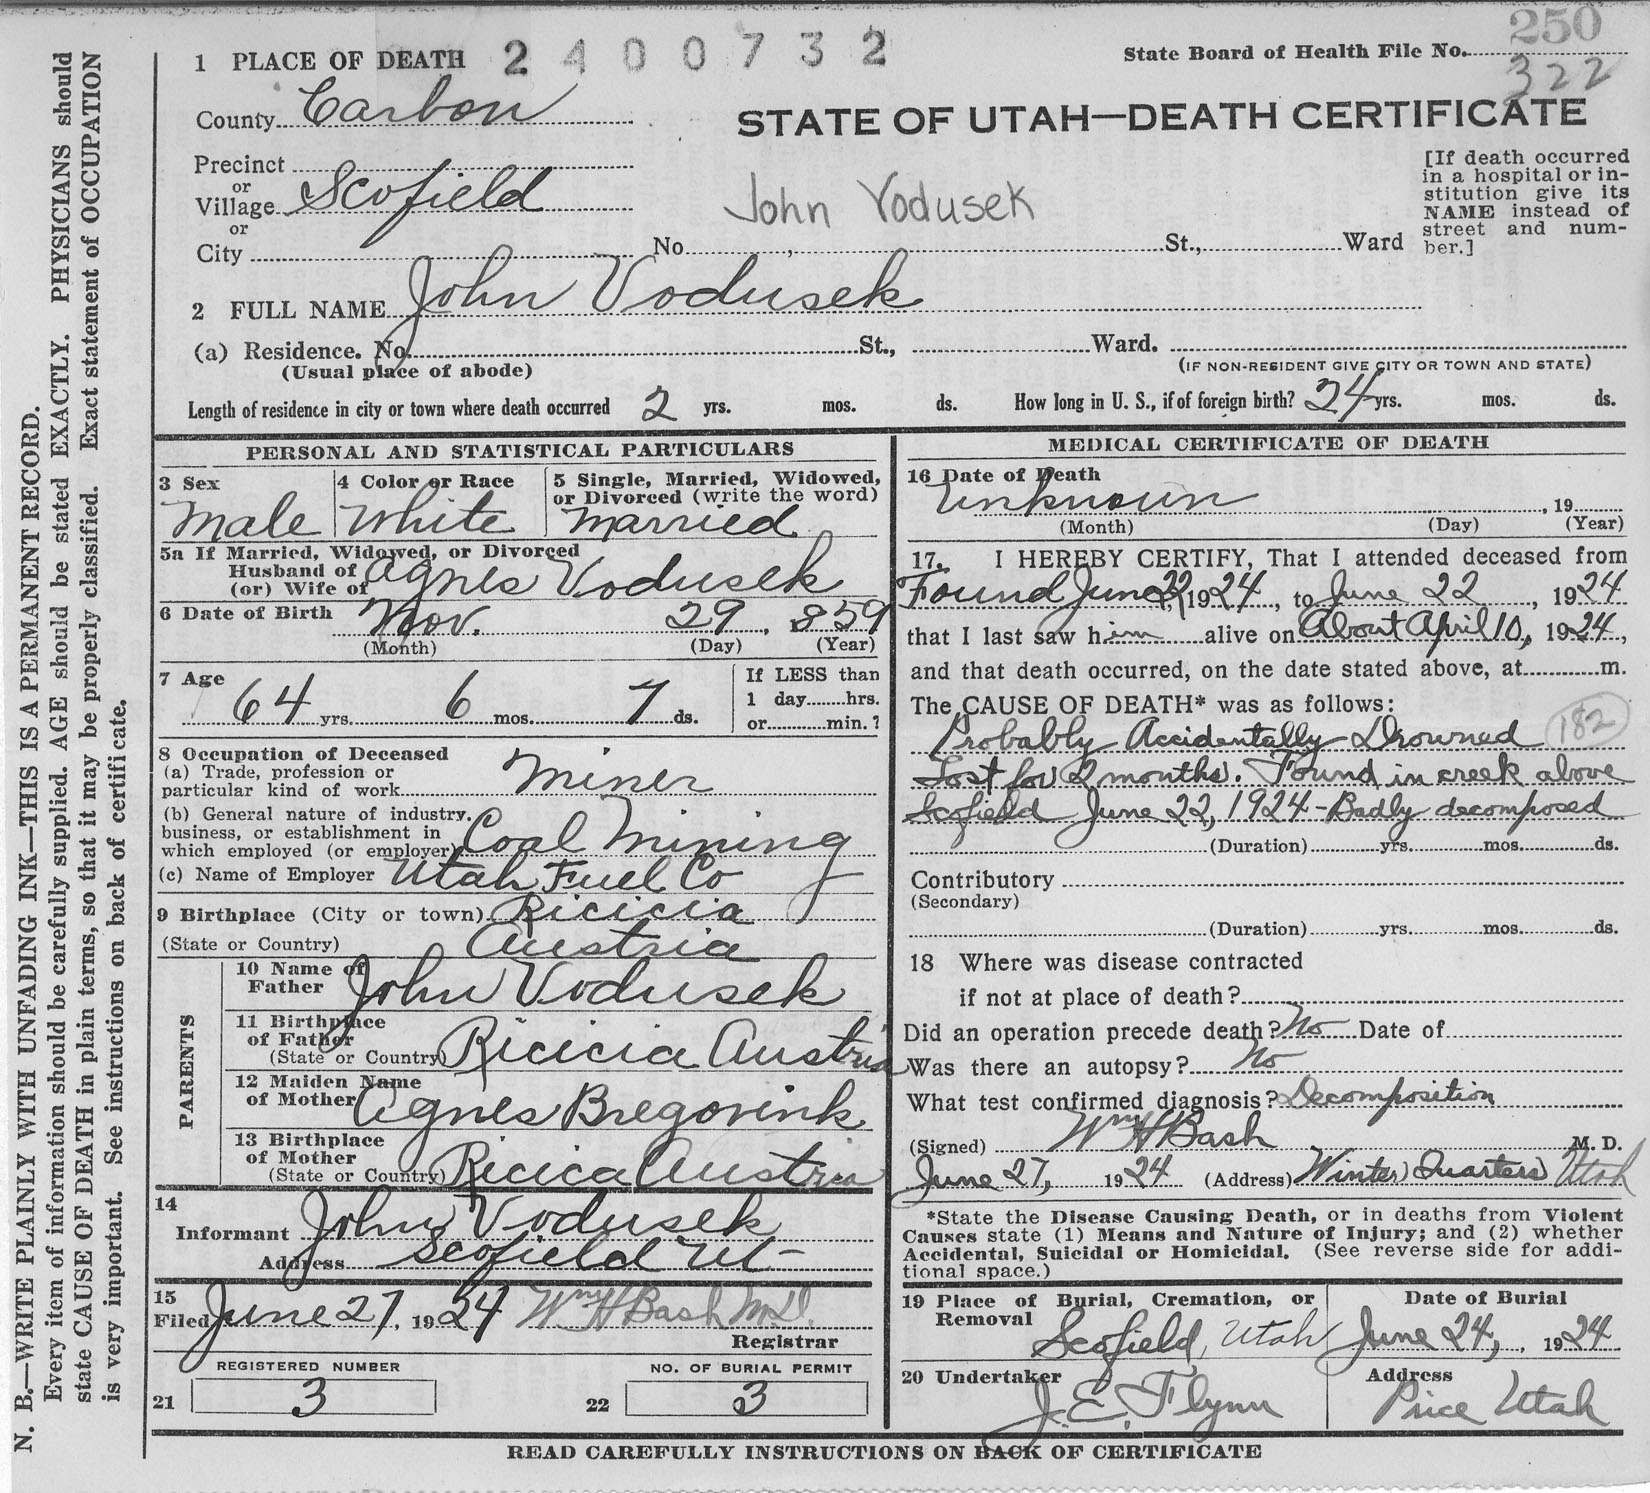 250
State Board of Health File No.
322
1 PLACE OF DEATH 2400732
County Carbon
STATE OF UTAH—DEATH CERTIFICATE
Precinct
or
Village Scofield
or
City
John Vodusek
No. , St., Ward
[If death occurred
in a hospital or in-
stitution give its
NAME instead of
street and num-
ber.]
2 FULL NAME John Vodusek
(a) Residence. No. St., Ward.
(Usual place of abode)
(IF NON-RESIDENT GIVE CITY OR TOWN AND STATE)
Length of residence in city or town where death occurred 2 yrs. mos. ds. How long in U. S., if of foreign birth? 24 yrs. mos. ds.
PERSONAL AND STATISTICAL PARTICULARS
3 Sex
Male
4 Color or Race
White
5 Single, Married, Widowed,
or Divorced (write the word)
Married
5a If Married, Widowed, or Divorced
Husband of
(or) Wife of Agnes Vodusek
6 Date of Birth Nov. 29, 859
(Month) (Day) (Year)
7 Age
64 yrs. 6 mos. 7 ds.
If LESS than
1 day hrs.
or min.?
8 Occupation of Deceased
(a) Trade, profession or
particular kind of work Miner
(b) General nature of industry.
business, or establishment in
which employed (or employer) Coal Mining
(c) Name of Employer Utah Fuel Co
9 Birthplace (City or town) Ricicia
(State or Country) Austria
PARENTS
10 Name of
Father John Vodusek
11 Birthplace
of Father
(State or Country) Ricicia Austria
12 Maiden Name
of Mother Agnes Bregovink
13 Birthplace
of Mother
(State or Country) Ricica Austria
14
Informant John Vodusek
Address Scofield Ut-
15
Filed June 27, 1924 Wm H Bash M.D.
Registrar
REGISTERED NUMBER
21 3
NO. OF BURIAL PERMIT
22 3
MEDICAL CERTIFICATE OF DEATH
16 Date of Death
Unknown , 19
(Month) (Day) (Year)
17. I HEREBY CERTIFY, That I attended deceased from
Found June 22, 1924, to June 22, 1924
that I last saw him alive on About April 10, 1924,
and that death occurred, on the date stated above, at m.
The CAUSE OF DEATH* was as follows:
182
Probably Accidentally Drowned
Lost for 2 months. Found in creek above
Scofield June 22, 1924 - Badly decomposed
(Duration) yrs. mos. ds.
Contributory
(Secondary)
(Duration) yrs. mos. ds.
18 Where was disease contracted
if not at place of death?
Did an operation precede death? No Date of
Was there an autopsy? No
What test confirmed diagnosis? Decomposition
(Signed) Wm H Bash M. D.
June 27, 1924 (Address) Winter Quarters Utah
*State the Disease Causing Death, or in deaths from Violent
Causes state (1) Means and Nature of Injury; and (2) whether
Accidental, Suicidal or Homicidal. (See reverse side for addi-
tional space.)
19 Place of Burial, Cremation, or
Removal
Scofield, Utah
Date of Burial
June 24, , 1924
20 Undertaker
J. E. Flynn
Address
Price Utah
READ CAREFULLY INSTRUCTIONS ON BACK OF CERTIFICATE
N. B.—WRITE PLAINLY WITH UNFADING INK—THIS IS A PERMANENT RECORD.
Every item of information should be carefully supplied. AGE should be stated EXACTLY. PHYSICIANS should
state CAUSE OF DEATH in plain terms, so that it may be properly classified. Exact statement of OCCUPATION
is very important. See instructions on back of certificate.